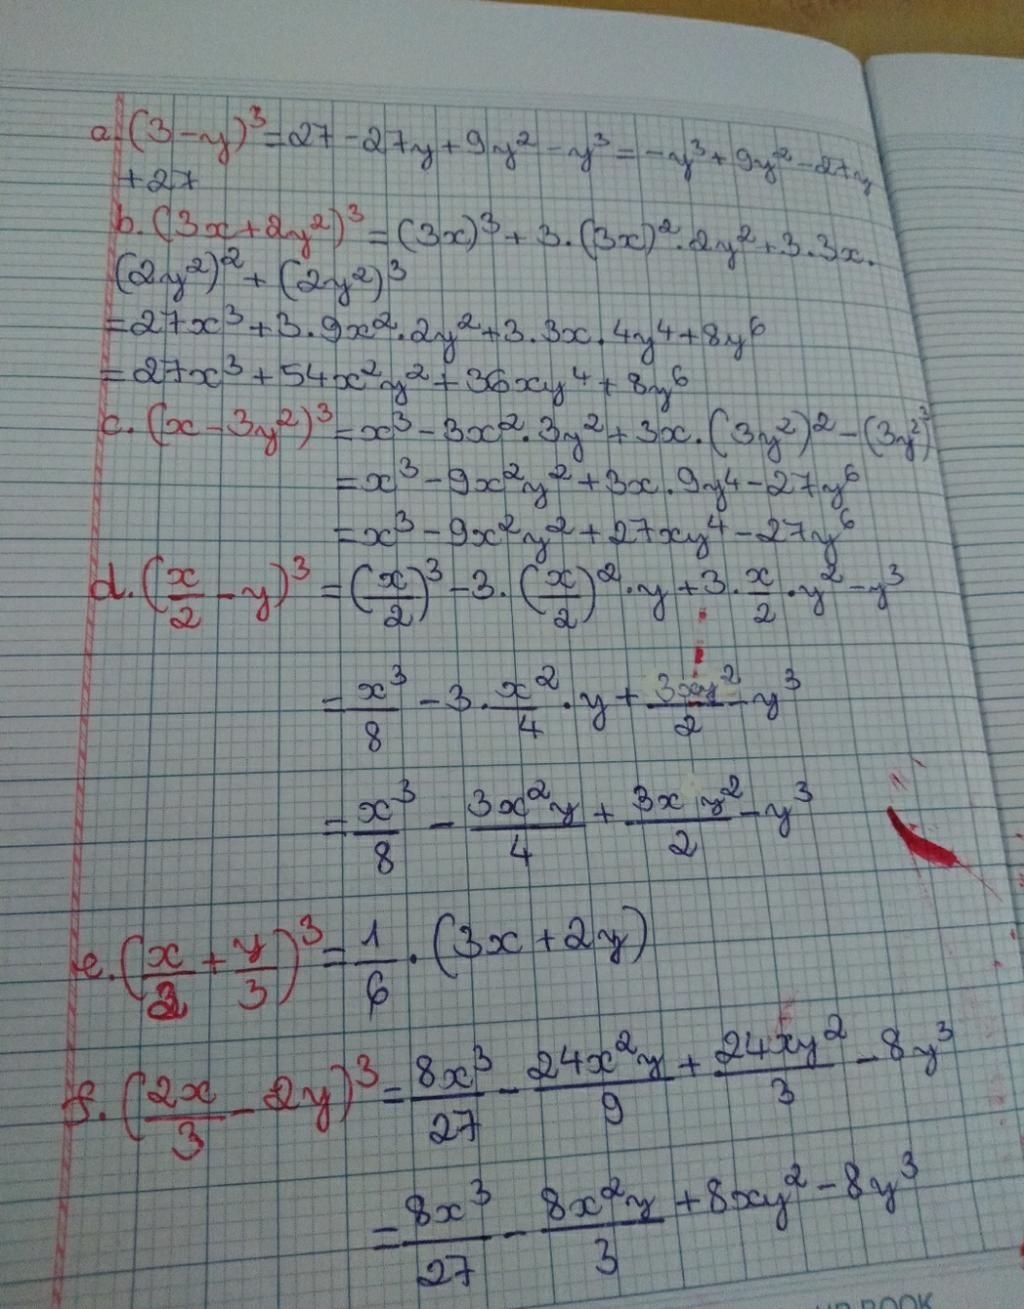 a. (3-y)³ = 27 - 27y + 9y² - y³ = -y³ + 9y² - 27y
+27
b. (3x+2y²)³ = (3x)³ + 3.(3x)².2y² + 3.3x.
(2y²)² + (2y²)³
= 27x³ + 3.9x².2y² + 3.3x.4y⁴ + 8y⁶
= 27x³ + 54x²y² + 36xy⁴ + 8y⁶
c. (x - 3y²)³ = x³ - 3x².3y² + 3x.(3y²)² - (3y²)³
= x³ - 9x²y² + 3x.9y⁴ - 27y⁶
= x³ - 9x²y² + 27xy⁴ - 27y⁶
d. (x/2 - y)³ = (x/2)³ - 3.(x/2)².y + 3.x/2.y² - y³
= x³/8 - 3.x²/4.y + 3xy²/2 - y³
= x³/8 - 3x²y/4 + 3xy²/2 - y³
e. (x/2 + y/3)³ = 1/6.(3x + 2y)
f. (2x/3 - 2y)³ = 8x³/27 - 24x²y/9 + 24xy²/3 - 8y³
= 8x³/27 - 8x²y/3 + 8xy² - 8y³
BOOK